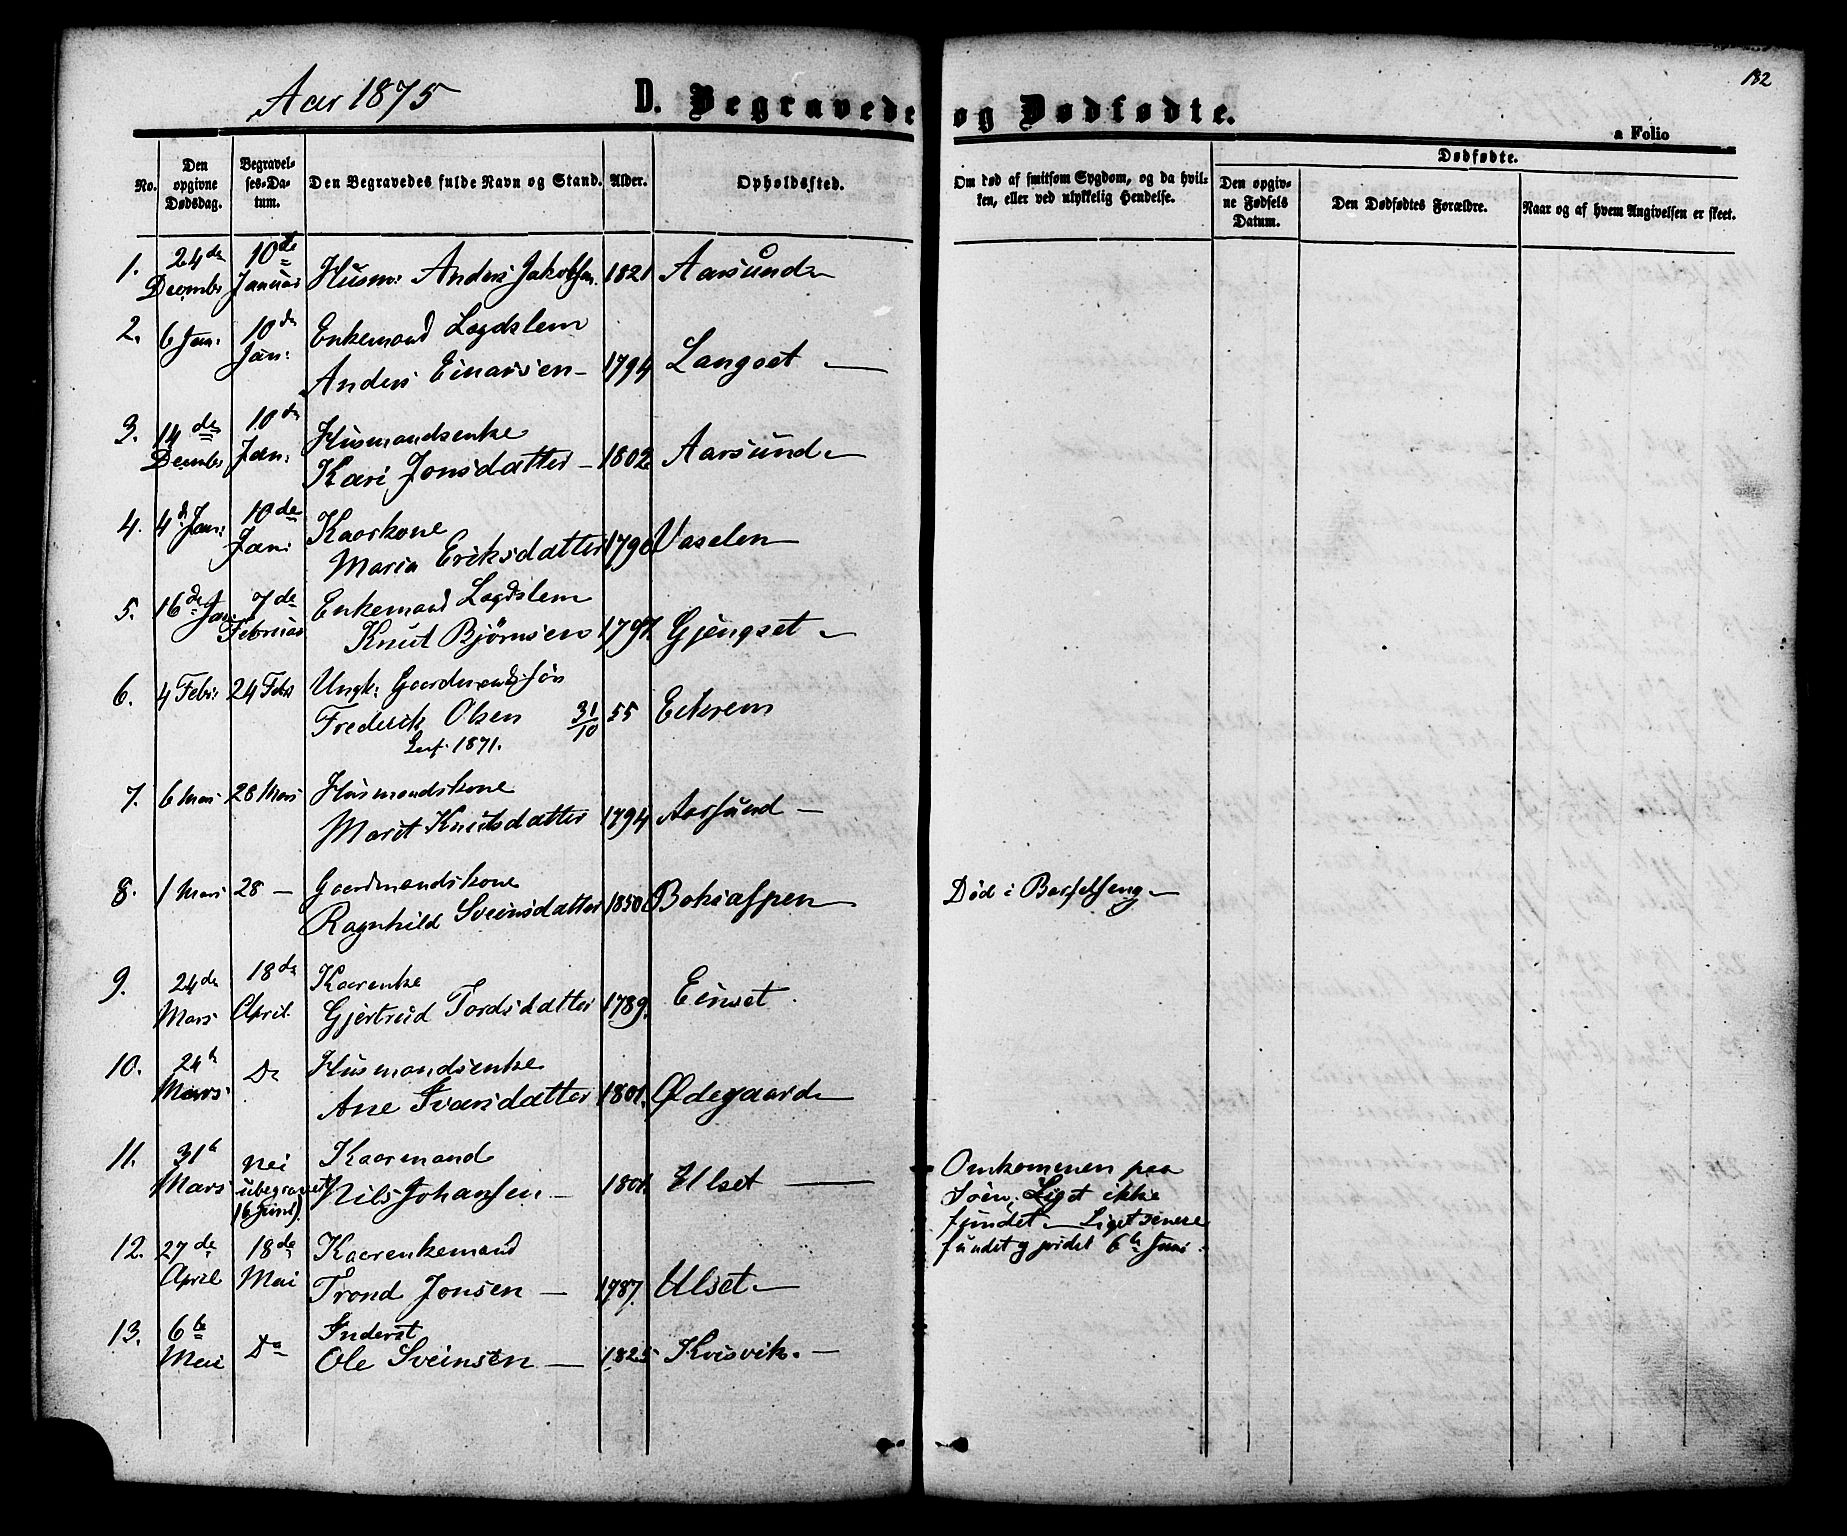 Aar 1875
D. Begravede og Dødfødte.
182
a Folio
No.
Den opgivne Dødsdag.
Begravelses-Datum.
Den Begravedes fulde Navn og Stand.
Alder.
Opholdssted.
Om død af smitsom Sygdom, og da hvilken, eller ved ulykkelig Hendelse.
Dødfødte.
Den opgivne Fødsels Datum.
Den Dødfødtes Forældre.
Naar og af hvem Angivelsen er skeet.
1. 24de Decembr 10de Januar Husm: Anders Jakobsen. 1821 Aarsund
2. 6 Jan: 10de Jan: Enkemand Lægdslem
Anders Einarsen 1794 Langset
3. 14de Decembr 10de Jan: Husmandsenke
Kari Jonsdatter 1802 Aarsund
4. 4de Jan: 10de Jan: Kaarkone
Maria Eriksdatter 1790 Vaselen
5. 16de Jan: 7de Februar Enkemand Lægdslem
Knut Bjørnsen 1797 Gjengset
6. 4 Febr: 24 Febr Ungk: Gaardmandssøn
Frederik Olsen 31/10 55 Eikrem
1871.
7. 6 Mars 28 Mars Husmandskone
Marit Knutsdatter 1794 Aarsund
8. 1 Mars 28 — Gaardmandskone
Ragnhild Sveinsdatter 1850 Bokiaspen Død i Barselseng
9. 24de Mars 18de April Kaarenke
Gjertrud Tordsdatter 1789. Einset
10. 24de Mars Do Husmandsenke
Ane Ivarsdatter 1801. Ødegaard
11. 31te Mars nei ubegravet (6 Juni) Kaarmand
Nils Johansen 1801. Ulset
Omkommen paa
Søen. Liget ikke
fundet. Liget senere
fundet g jordet 6te Juni.
12. 27de April 18de Mai Kaarenkemand
Trond Jonsen 1787. Ulset
13. 6te Mai Do Inderst
Ole Sveinsen 1825 Kvisvik.